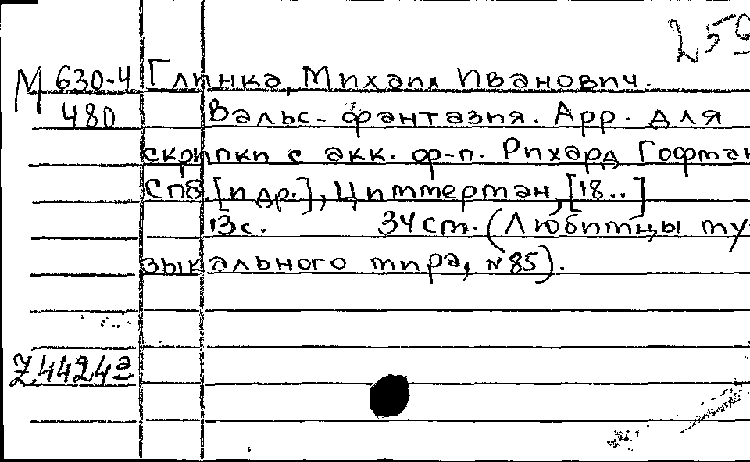 259
М 630-4 Глинка, Михаил Иванович.
480 Вальс-фантазия. Арр. для
скрипки с акк. ф-п. Рихард Гофман
СПб. [и др.], Циммерман, [18..]
13с. 34 см. (Любимцы му-
зыкального мира, №85).
Z4424а